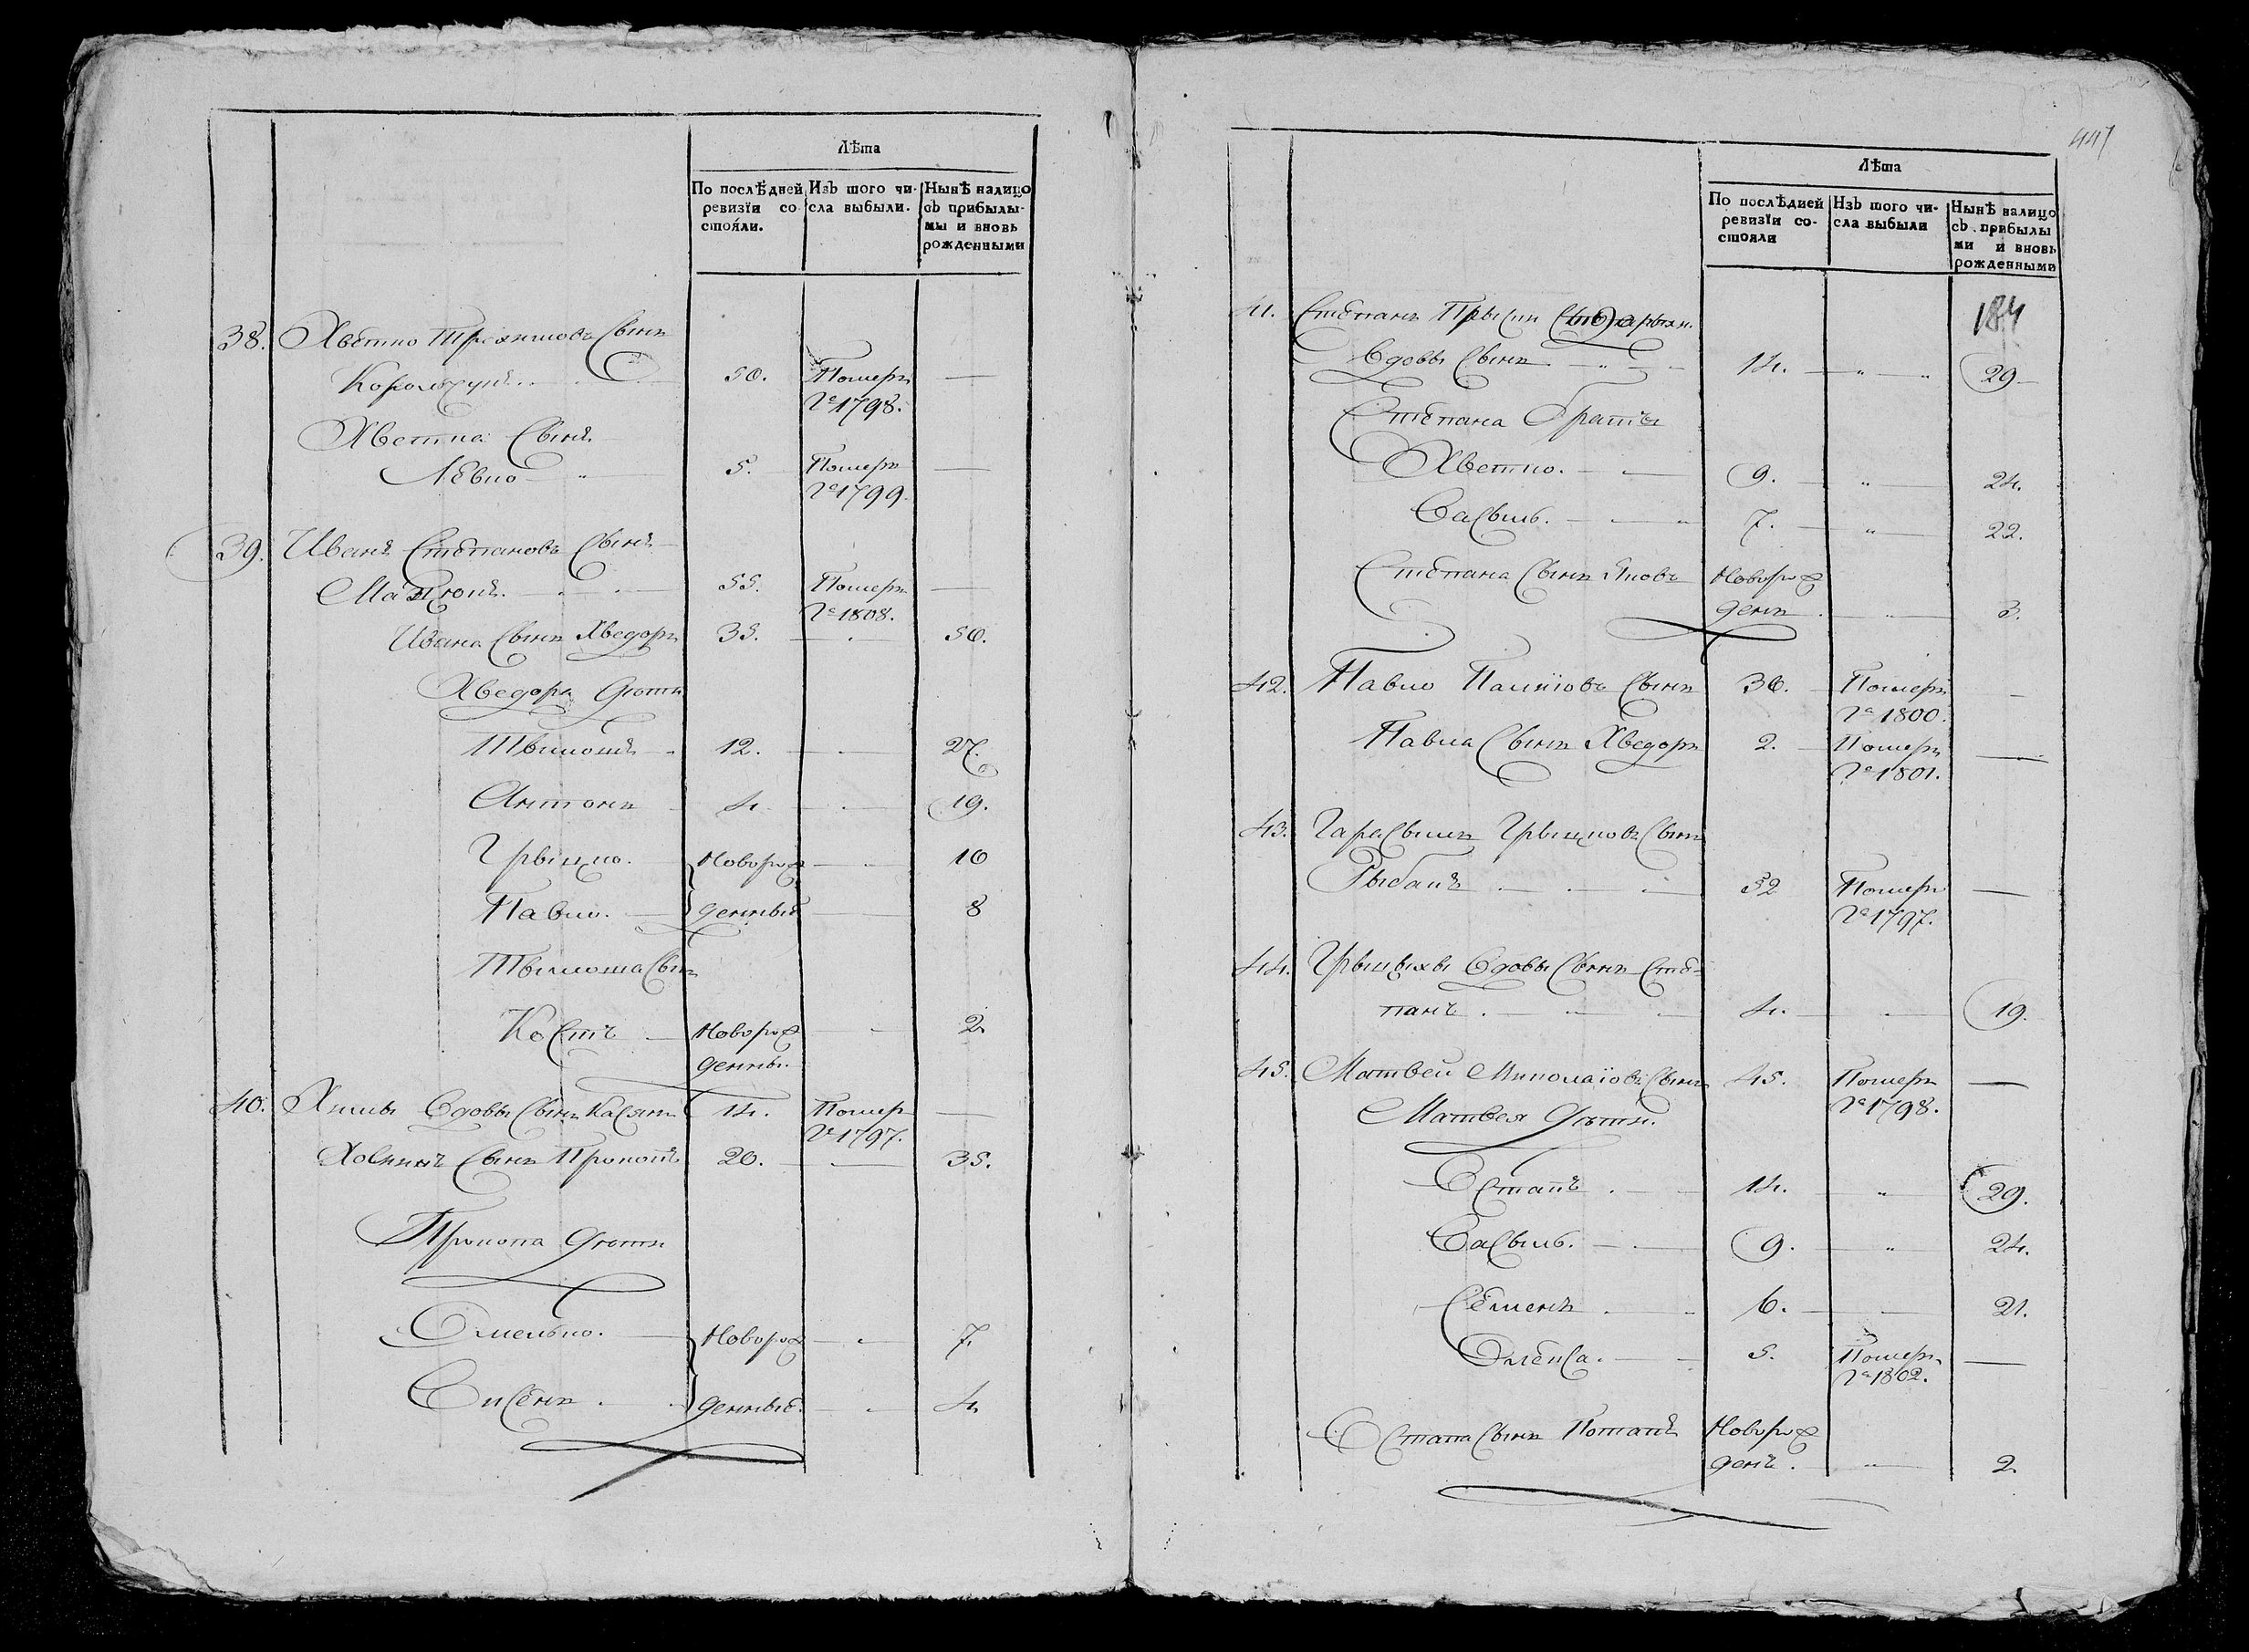 Лѣта
По послѣдней ревизїи состояли.
Изъ того числа выбыли.
Нынѣ налицо съ прибылыми и вновь рожденными
38. Хветко Трохимовъ Сынъ
50. Померъ —
Го 1798.
Хветка Сынъ
Левко 5. Померъ —
Го 1799.
39. Иванъ Степановъ Сынъ
55. Померъ —
Го 1808.
Ивана Сынъ Хведоръ 35. — 50.
Хведора Дѣти
Тымошъ 12. — 27.
Антонъ 4. — 19.
Грыцко. Новорож — 10
Павло. денные — 8
Тымоша Сынъ
Костъ Новорож — 2.
денны.
40. Вдовы Сынъ Касянъ 14. Помер —
Го 1797.
Сынъ Прокопъ 20. — 35.
Прокопа Дѣти
Омелько. Новорож — 7.
денные. — 4
447
Лѣта
По послѣдней ревизїи состояли
Изъ того числа выбыли
Нынѣ налицо съ прибылыми и вновь рожденными
184
41. Степанъ
Вдовы Сынъ 14. — 29
Степана Братъя
Хветко. 9. — 24.
Васыль. 7. — 22.
Степана Сынъ Яковъ Новорож
денъ — 3.
42. Павло Сынъ 30. Померъ —
Го 1800.
Павла Сынъ Хведоръ 2. Померъ —
Го 1801.
43. Гарасымъ Грыцковъ Сынъ
Рыбакъ 32 Померъ —
Го 1797.
44. Грыцыхы Вдовы Сынъ Сте-
панъ 4. — 19.
45. Матвей Миколаїовъ Сынъ 45. Померъ —
Го 1798.
Матвея Дѣти.
Остапъ 14. — 29.
Васыль. 9. — 24.
Семенъ 6. — 21.
Олекса. 5. Померъ —
Го 1802.
Остапа Сынъ Потапъ Новорож
денъ. — 2.